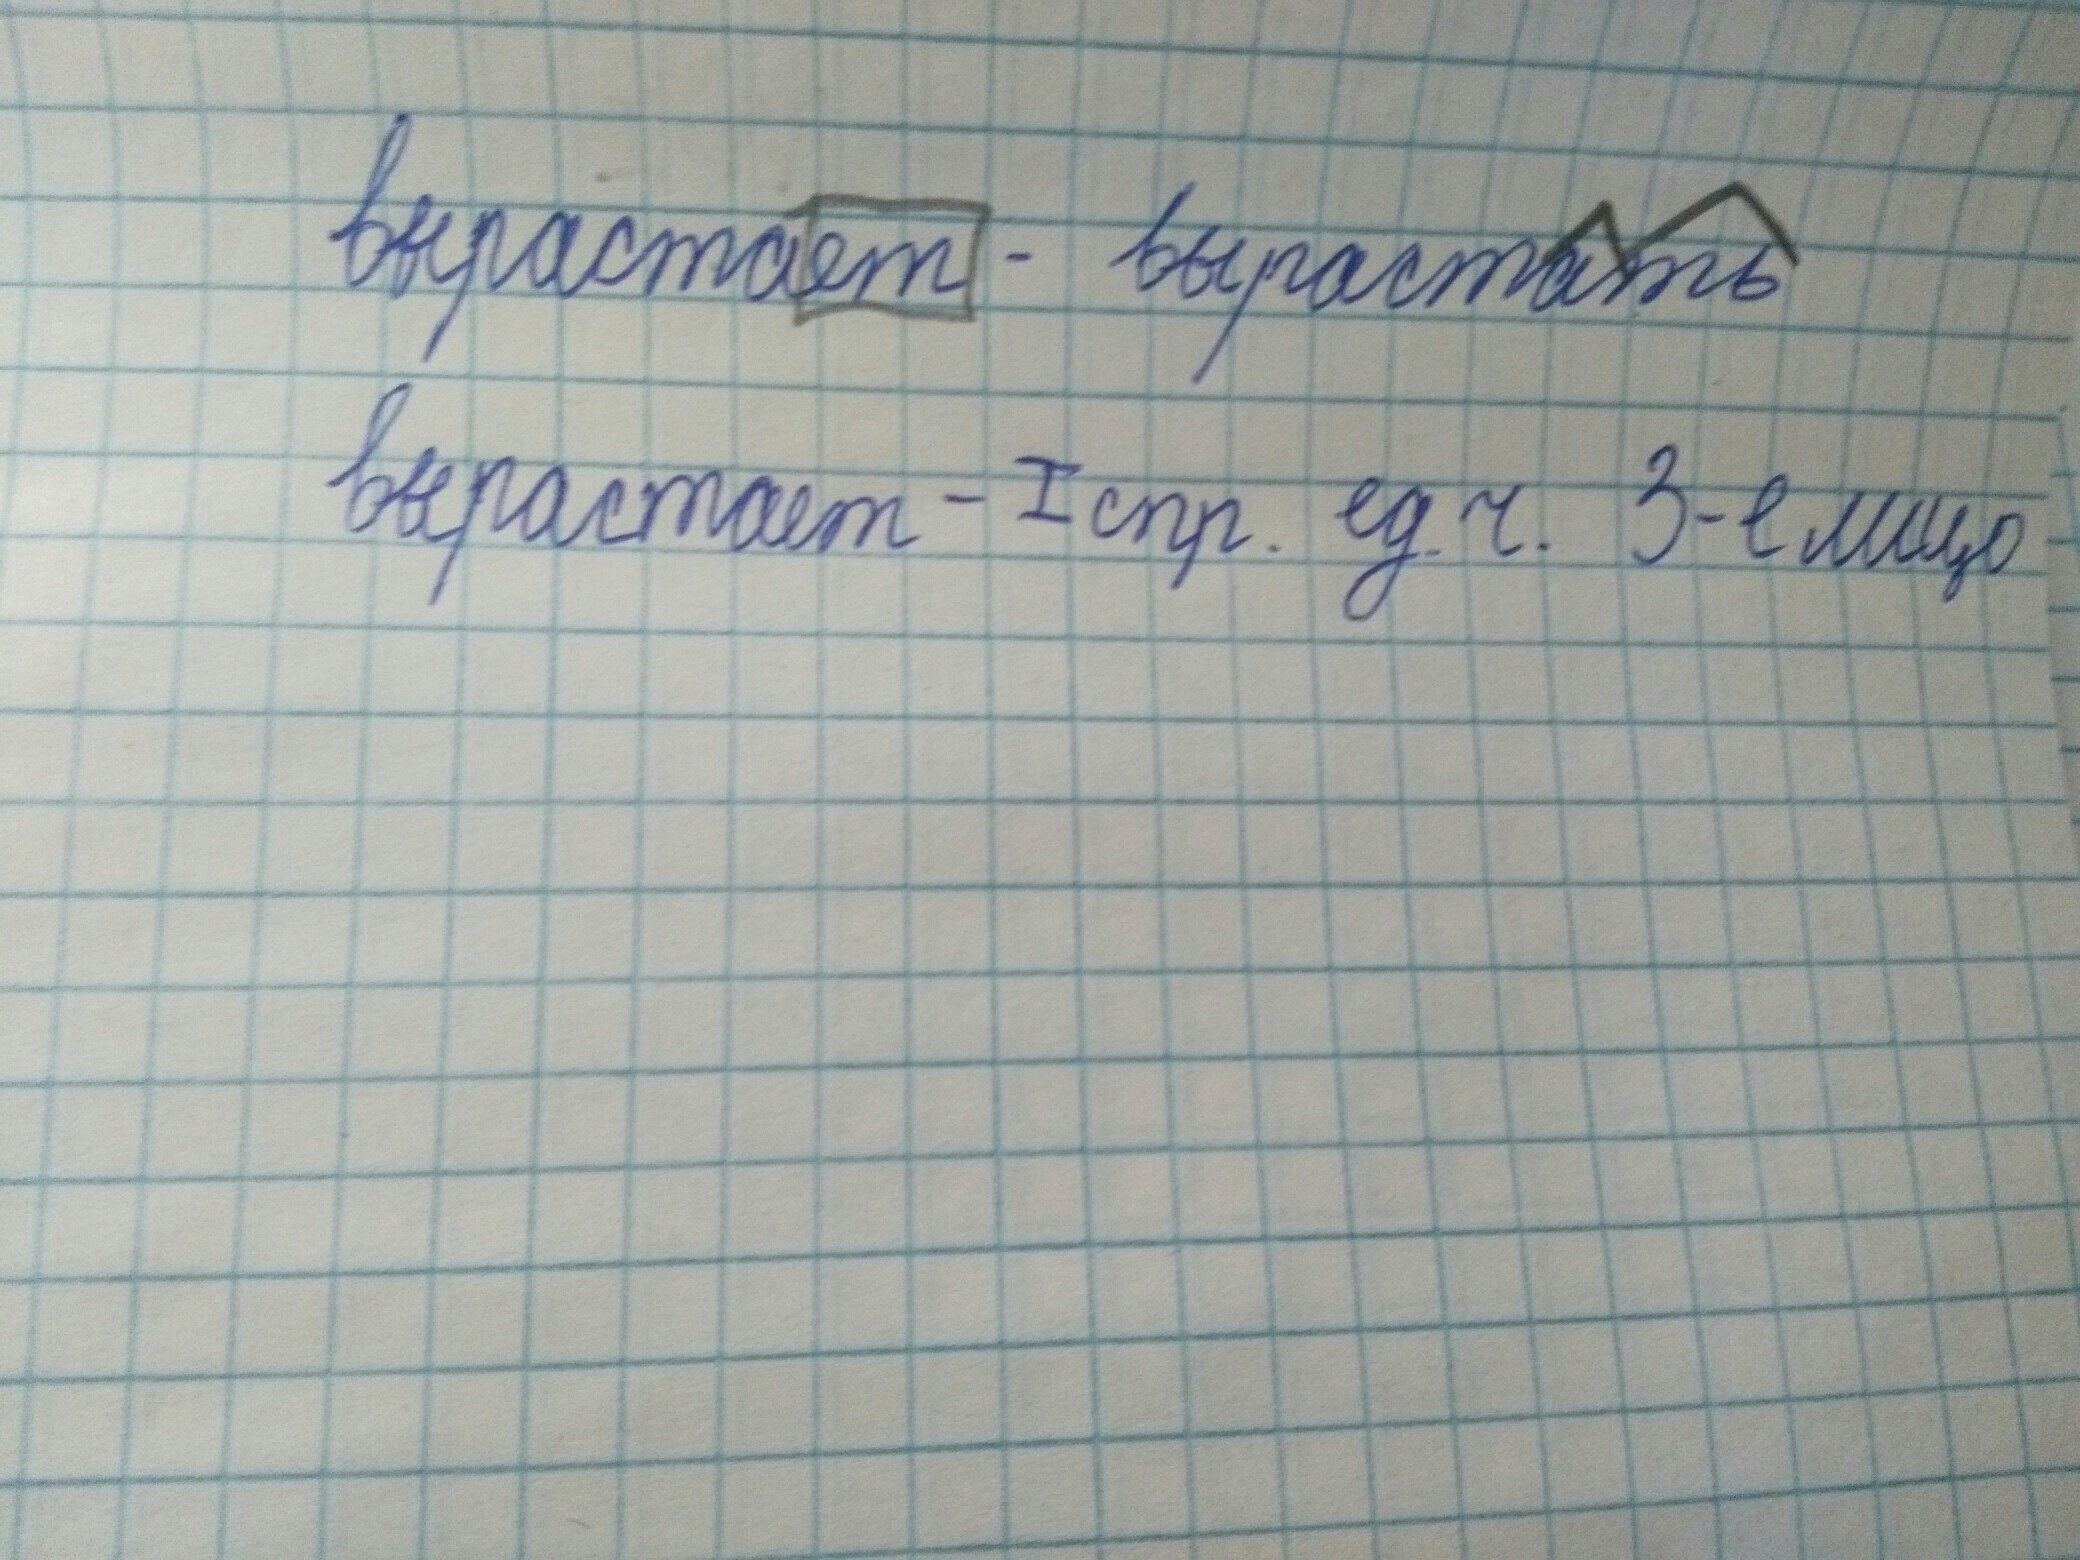 вырастает - вырастать
вырастает - I спр. ед. ч. 3-е лицо